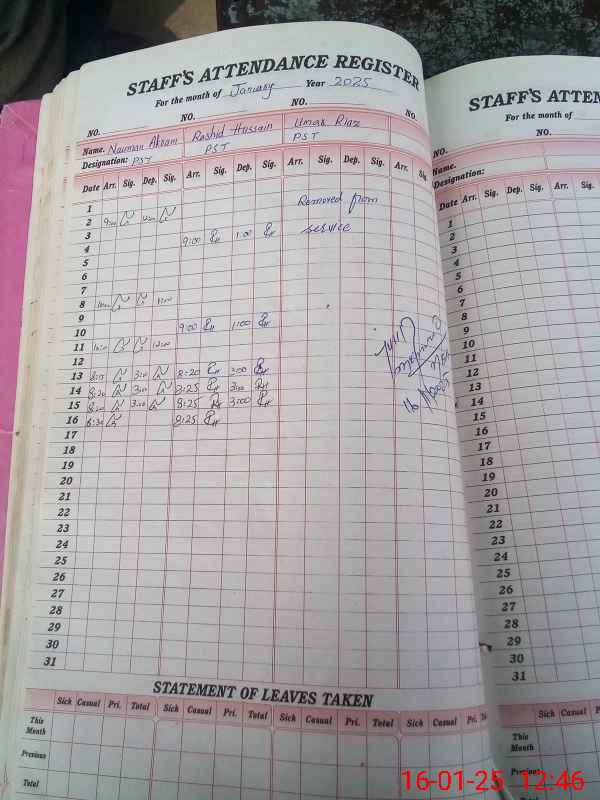 STAFF'S ATTENDANCE REGISTER
For the month of January Year 2025
NO. NO. NO. NO.
Name. Nauman Akram Rashid Hussain Umar Riaz
Designation: PST PST PST
Date Arr. Sig. Dep. Sig. Arr. Sig. Dep. Sig. Arr. Sig. Dep. Sig. Arr. Sig.
1
2 Removed from
3
4 9:00 1:00 service
5
6
7
8
9
10 9:00 1:00
11
12
13 3:00 8:20 3:00
14 8:20 3:00 8:25 3:00
15 8:20 3:00 8:25 3:00
16 8:25
17
18
19
20
21
22
23
24
25
26
27
28
29
30
31
STATEMENT OF LEAVES TAKEN
Sick Casual Pri. Total Sick Casual Pri. Total Sick Casual Pri. Total Sick Casual Pri.
This Month
Previous
Total
STAFF'S ATTEN
For the month of
NO. NO.
Name.
Designation:
Date Arr. Sig. Dep. Sig. Arr. Sig.
1
2
3
4
5
6
7
8
9
10
11
12
13
14
15
16
17
18
19
20
21
22
23
24
25
26
27
28
29
30
31
Sick Casual Pri. Total Sick Casual
This Month
Previous
Total
16-01-25 12:46